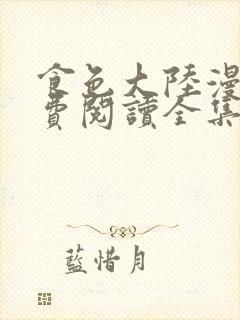 食色大陸漫
費閱讀全集
藍惜月